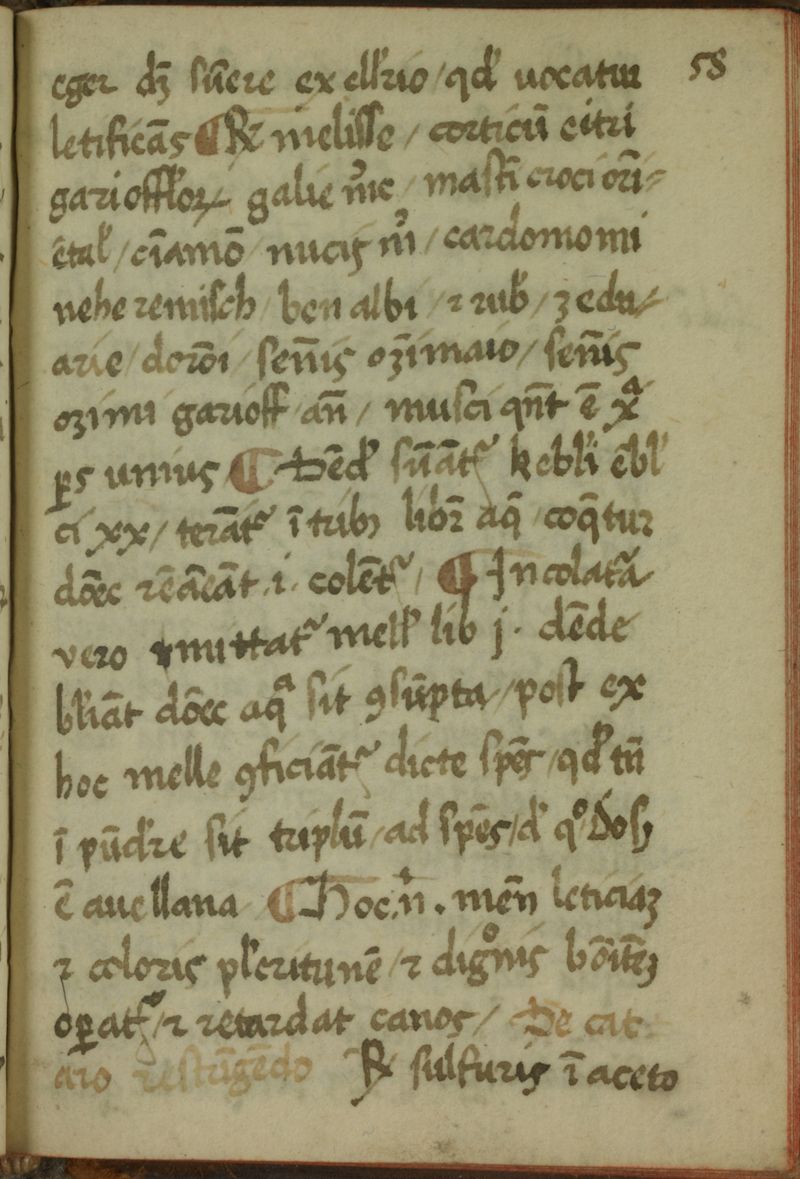 58
eger dz sūere ex ellr̄io / qd' uocatur
letificās ¶ ℞ melisse / corticū citri
garioffl'or / galie m̄c / masti croci ori=
ētal' / ciamō / nucis m̄ / cardomomi
behe remisch / ben albi / ⁊ rub' / zedu=
arie / doroī / sem̄s ozimaio / sem̄s
ozimi garioff an̄ / musci qn̄t ē xª
ps unius ¶ Dēd' sūāt' kebl'i ēbl'
ci xx / terāt' ī trib; libr̄ aq̄ / coq̄tur
dōec rēāeāt .i. colēt' / ¶ In colat'a
vero mittat' mell' lib j. dēde
bl'iāt dōec aqª sit ꝯsūpta / post ex
hoc melle ꝯficiāt' dicte spēs / qd' tn̄
ī pūd're sit triplū / ad spēs / d' qº Dos;
ē auellana ¶ Hoc .n̄. mēn leticiaz
⁊ coloris pl'critunē / ⁊ digº̄nis bōitēz
opat' / ⁊ retardat canos / De cat
aro restrīgēdo ℞ sulfuris ī aceto